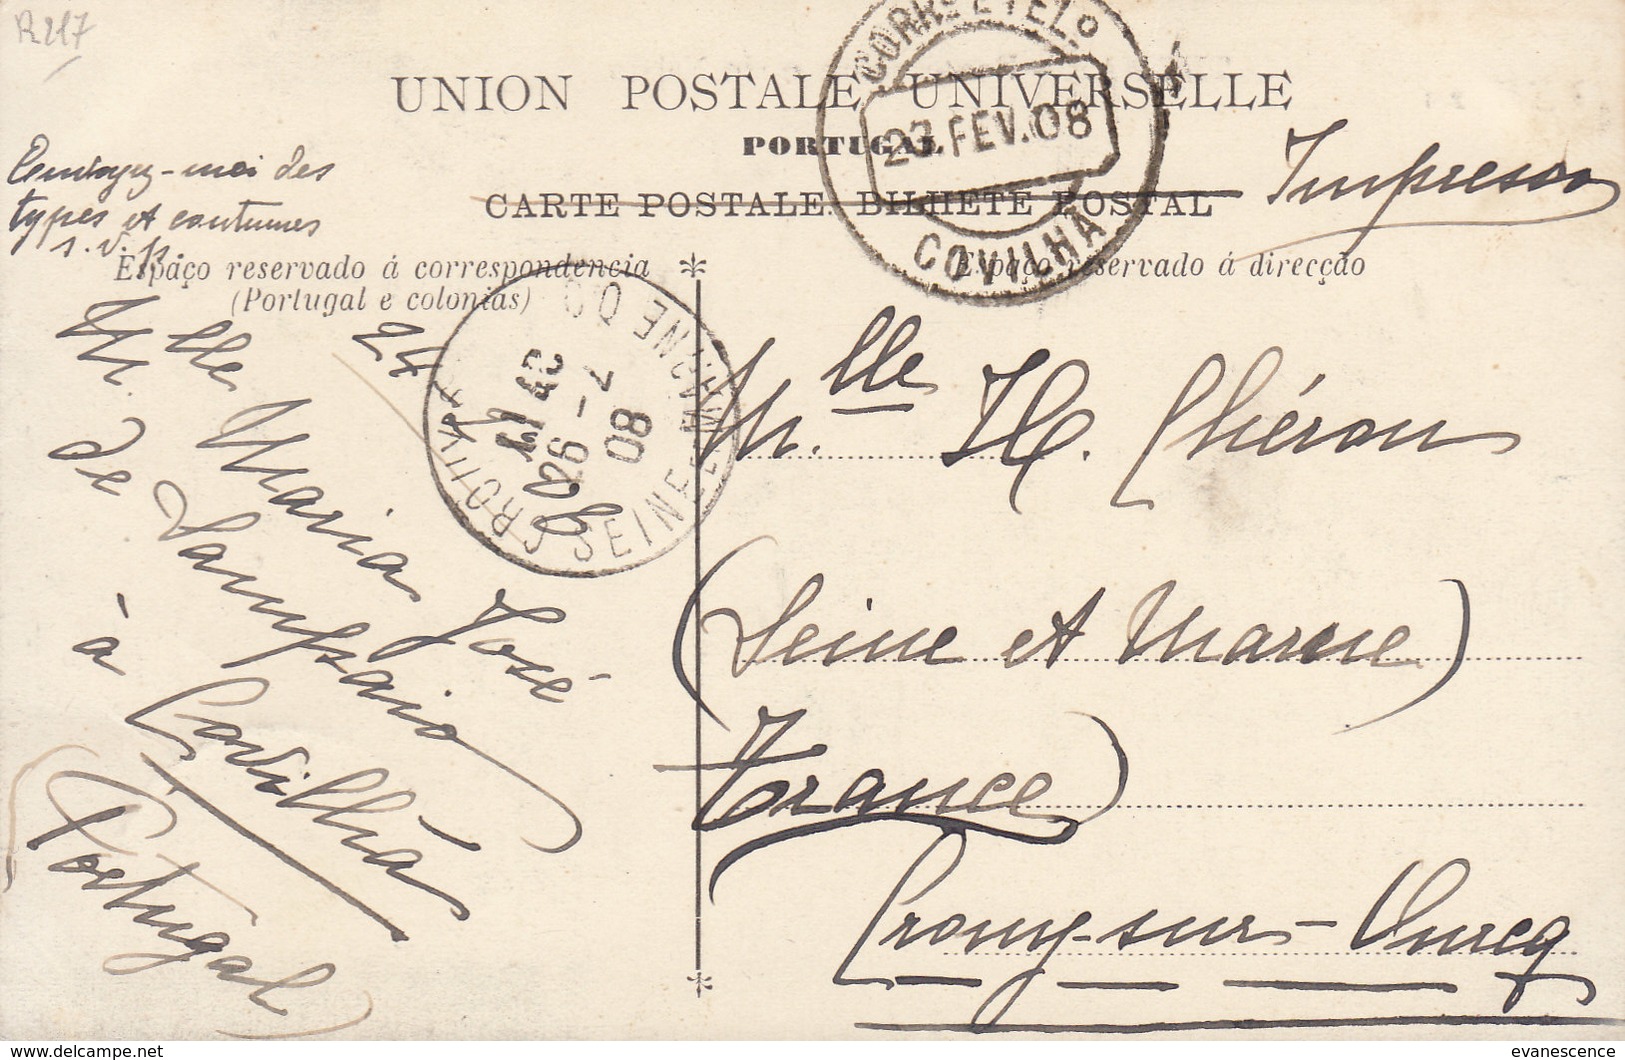 R217
UNION POSTALE UNIVERSELLE
PORTUGAL
CARTE POSTALE. BILHETE POSTAL
Impresso
CORRº E TELº
23.FEV.08
COVILHÃ
Envoyez-moi des
types et coutumes
s.v.p.
Espaço reservado á correspondencia
(Portugal e colonias)
Espaço reservado á direcção
SEINE-ET-MARNE
26-2
08
Mlle Maria José
de
à Covilhã
Portugal
Mlle H. Chéron
(Seine et Marne)
France)
Crouy-sur-Ourcq
evanescence